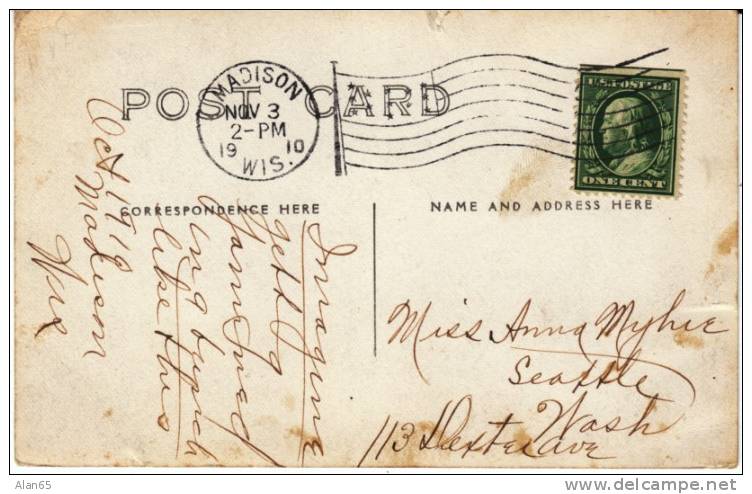 POST CARD
MADISON
NOV 3
2-PM
19 10
WIS.
U.S. POSTAGE
ONE CENT
CORRESPONDENCE HERE
NAME AND ADDRESS HERE
Madison
Wis
Imagine
like this
Miss Anna Myhre
Seattle
Wash
113 Dexter Ave
Alan65
delcampe.net